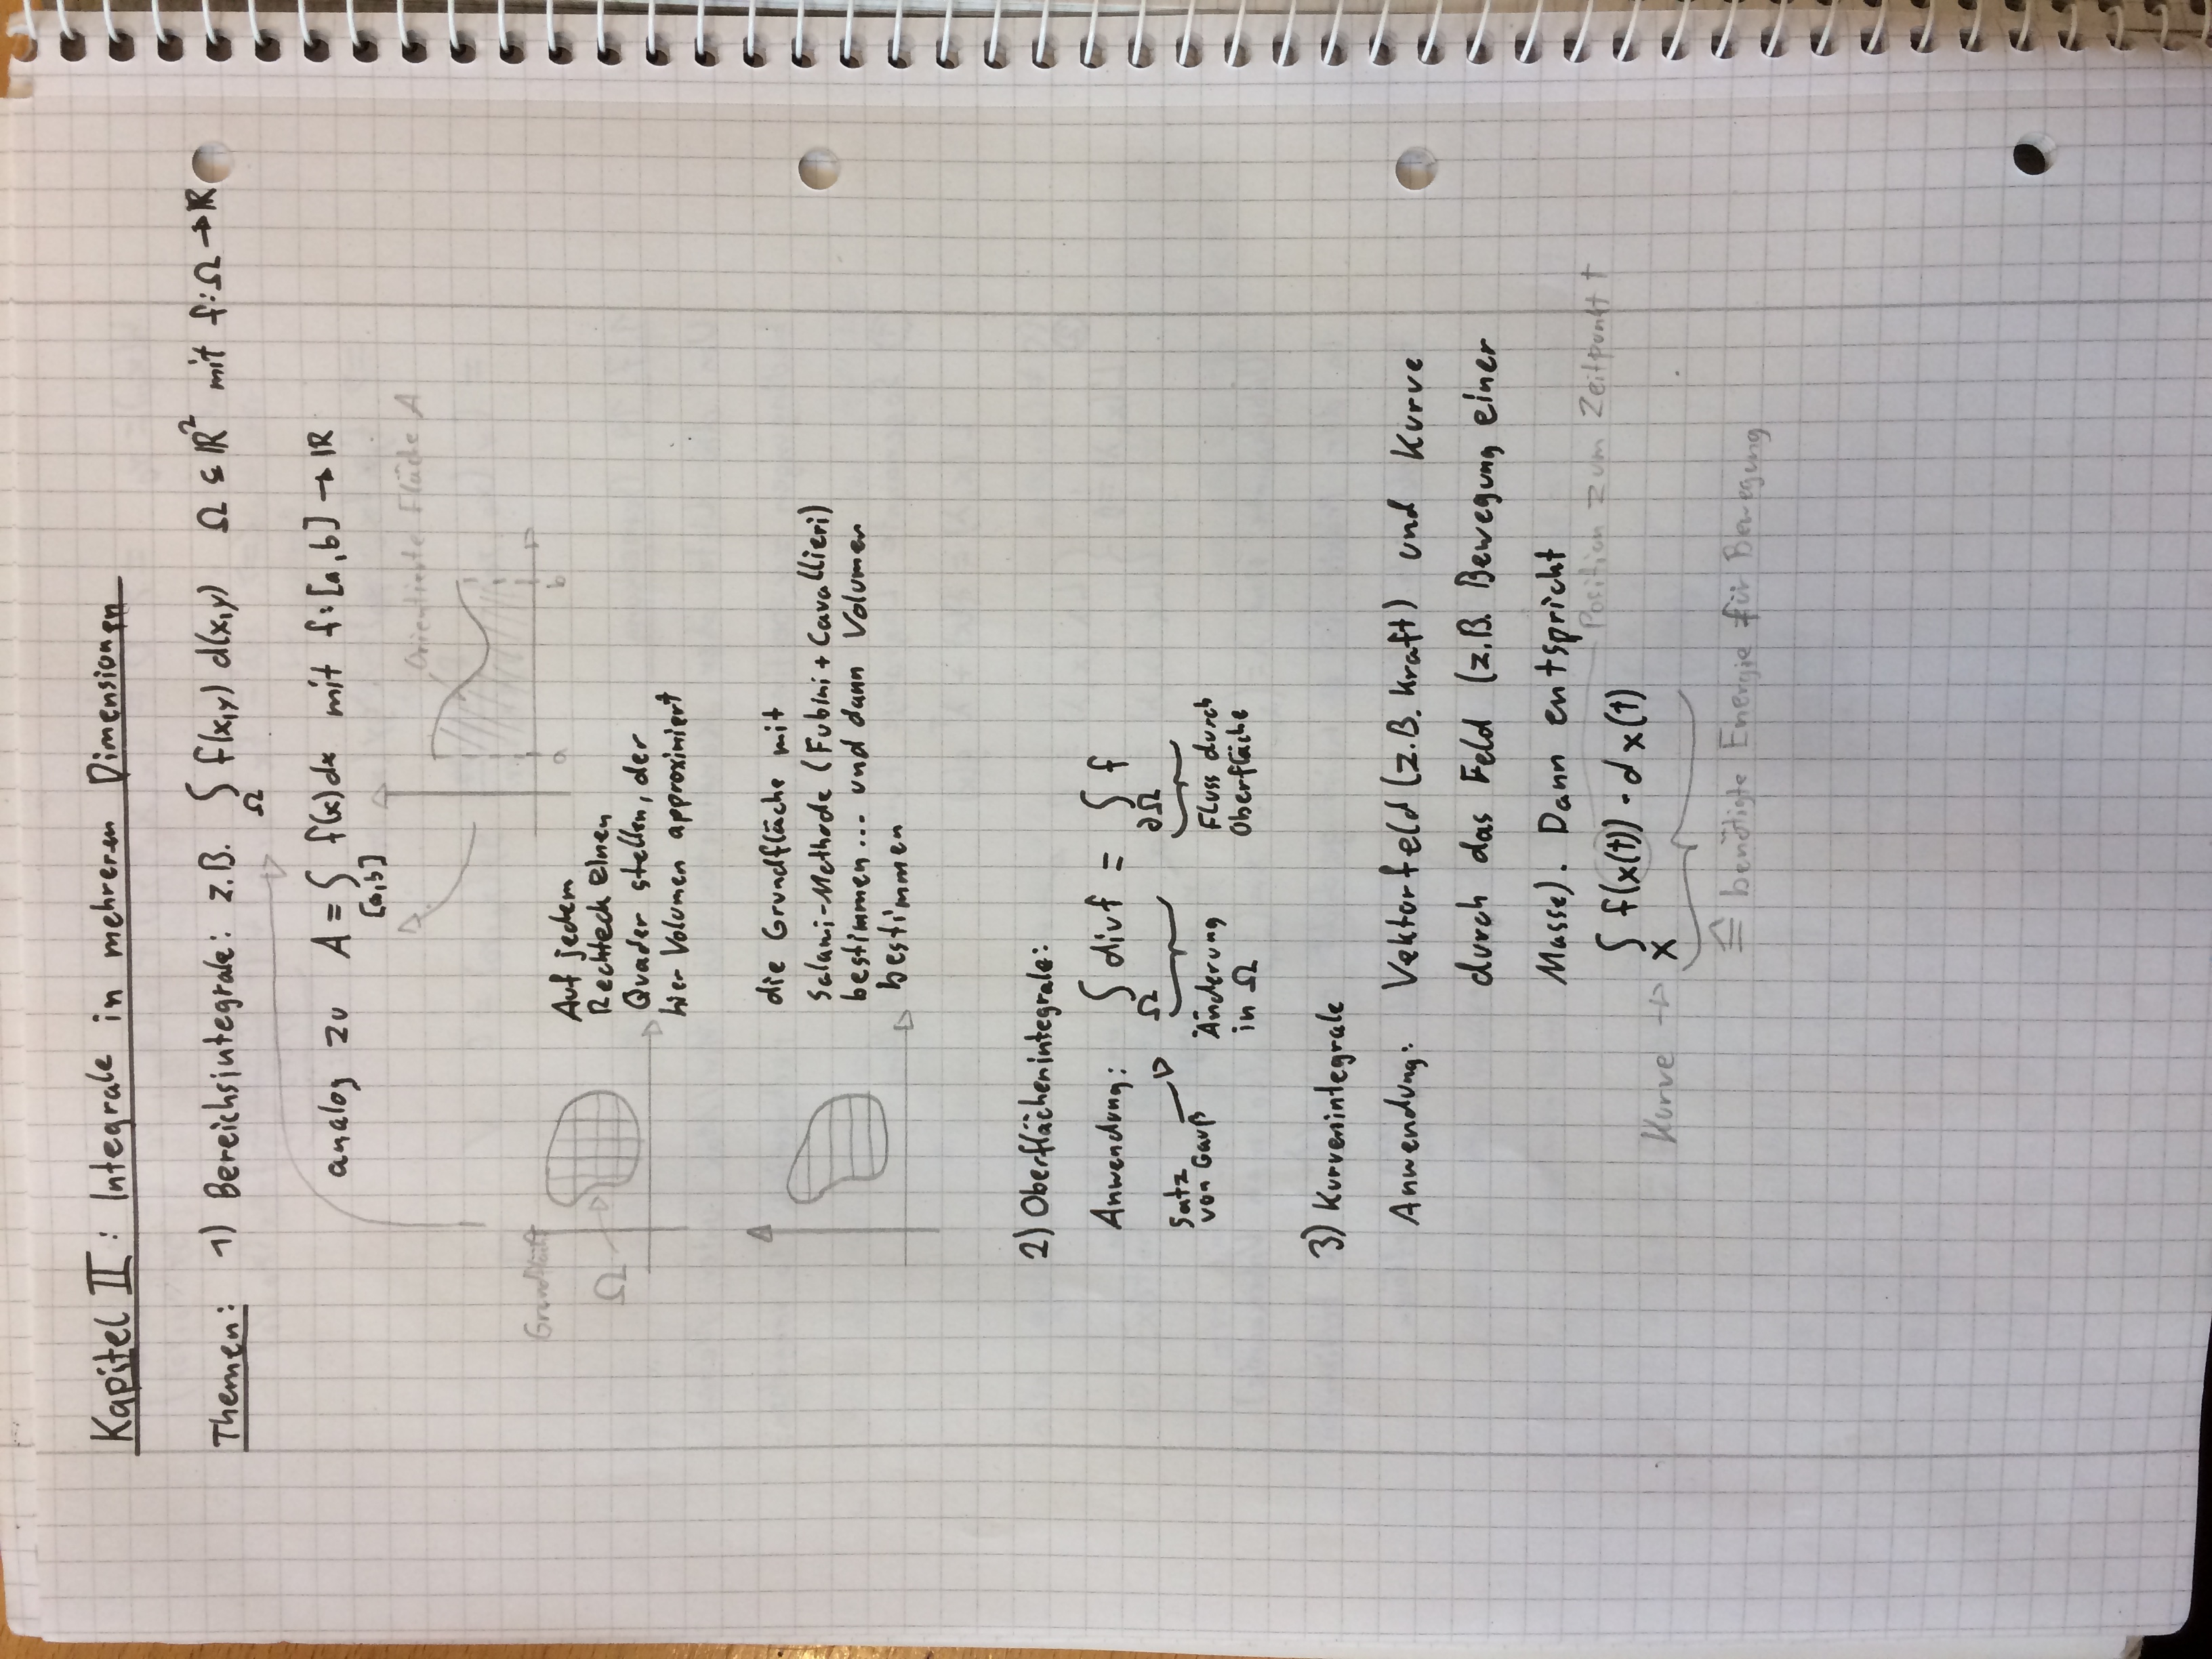 Kapitel II: Integrale in mehreren Dimensionen
Themen: 1) Bereichsintegrale: z.B. ∫ f(x,y) d(x,y) Ω ⊆ ℝ² mit f: Ω → ℝ
Ω
analog zu A = ∫ f(x)dx mit f: [a,b] → ℝ
[a,b]
Orientierte Fläche A
a b
Grundfläche
Ω
Auf jedem
Rechteck einen
Quader stellen, der
hier Volumen approximiert
die Grundfläche mit
Salami-Methode (Fubini + Cavallieri)
bestimmen... und dann Volumen
bestimmen
2) Oberflächenintegrale:
Anwendung: ∫ div f = ∫ f
Ω ∂Ω
Satz
von Gauß
Änderung
in Ω
Fluss durch
Oberfläche
3) Kurvenintegrale
Anwendung: Vektorfeld (z.B. Kraft) und Kurve
durch das Feld (z.B. Bewegung einer
Masse). Dann entspricht
Position zum Zeitpunkt t
∫ f(x(t)) · d x(t)
Kurve → x
≙ benötigte Energie für Bewegung